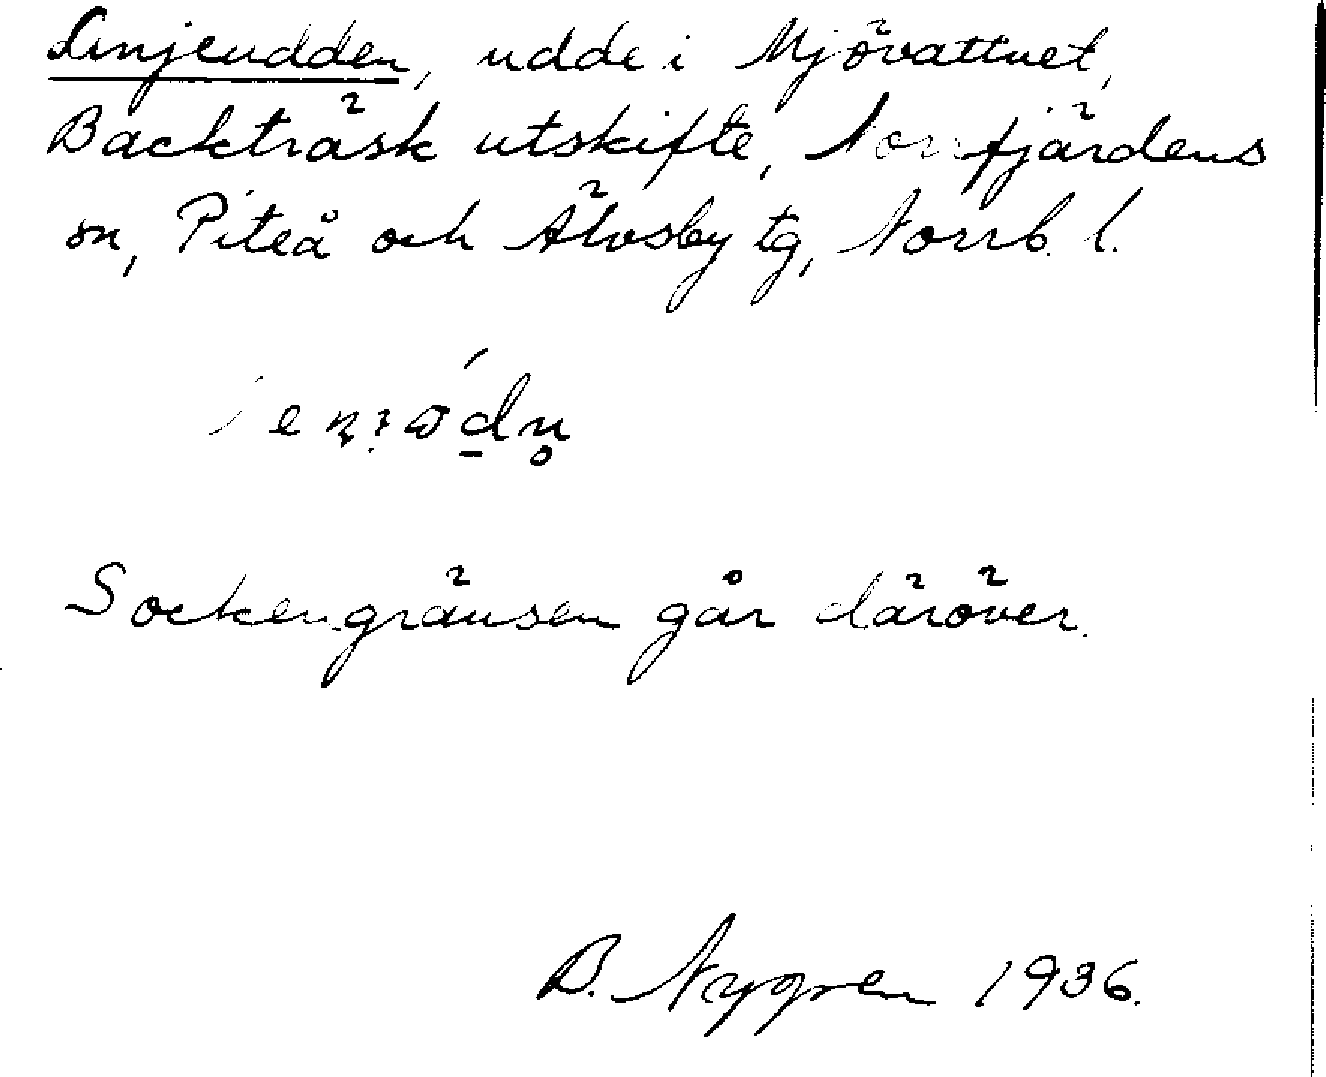 Linjeudden, udde i Mjövattnet,
Backträsk utskifte, Norrfjärdens
sn, Piteå och Älvsby tg, Norrb. l.
Sockengränsen går däröver.
B. Nygren 1936.